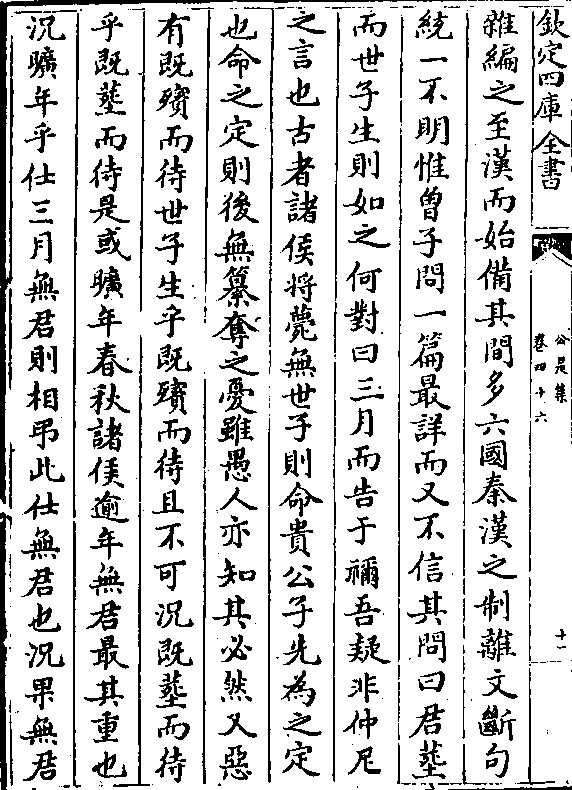 欽定四庫全書
公是集
卷四十六
十一
雜編之至漢而始備其間多六國秦漢之制離文斷句
統一不明惟曾子問一篇最詳而又不信其問曰君塟
而世子生則如之何對曰三月而告于禰吾疑非仲尼
之言也古者諸侯將薨無世子則命貴公子先為之定
也命之定則後無纂奪之憂雖愚人亦知其必然又惡
有既殯而待世子生乎既殯而待且不可況既塟而待
乎既塟而待是或曠年春秋諸侯逾年無君最其重也
況曠年乎仕三月無君則相弔此仕無君也況果無君